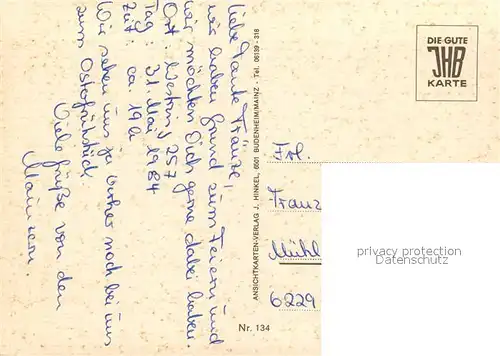 Liebe Tante Fränze,
wir haben Grund zum Feiern und
wir möchten Dich gerne dabei haben.
Ort: Westring 257
Tag: 31. Mai 1984
Zeit: ca 19h
Wir sehen uns ja vorher noch bei uns
zum Osterfrühstück.
Viele Grüße von den
Mainzern
ANSICHTKARTEN-VERLAG J. HINKEL, 6501 BUDENHEIM/MAINZ - Tel. 06139 - 318
Nr. 134
DIE GUTE
JHB
KARTE
Frl.
Franz
Mühl
6229
privacy protection
Datenschutz